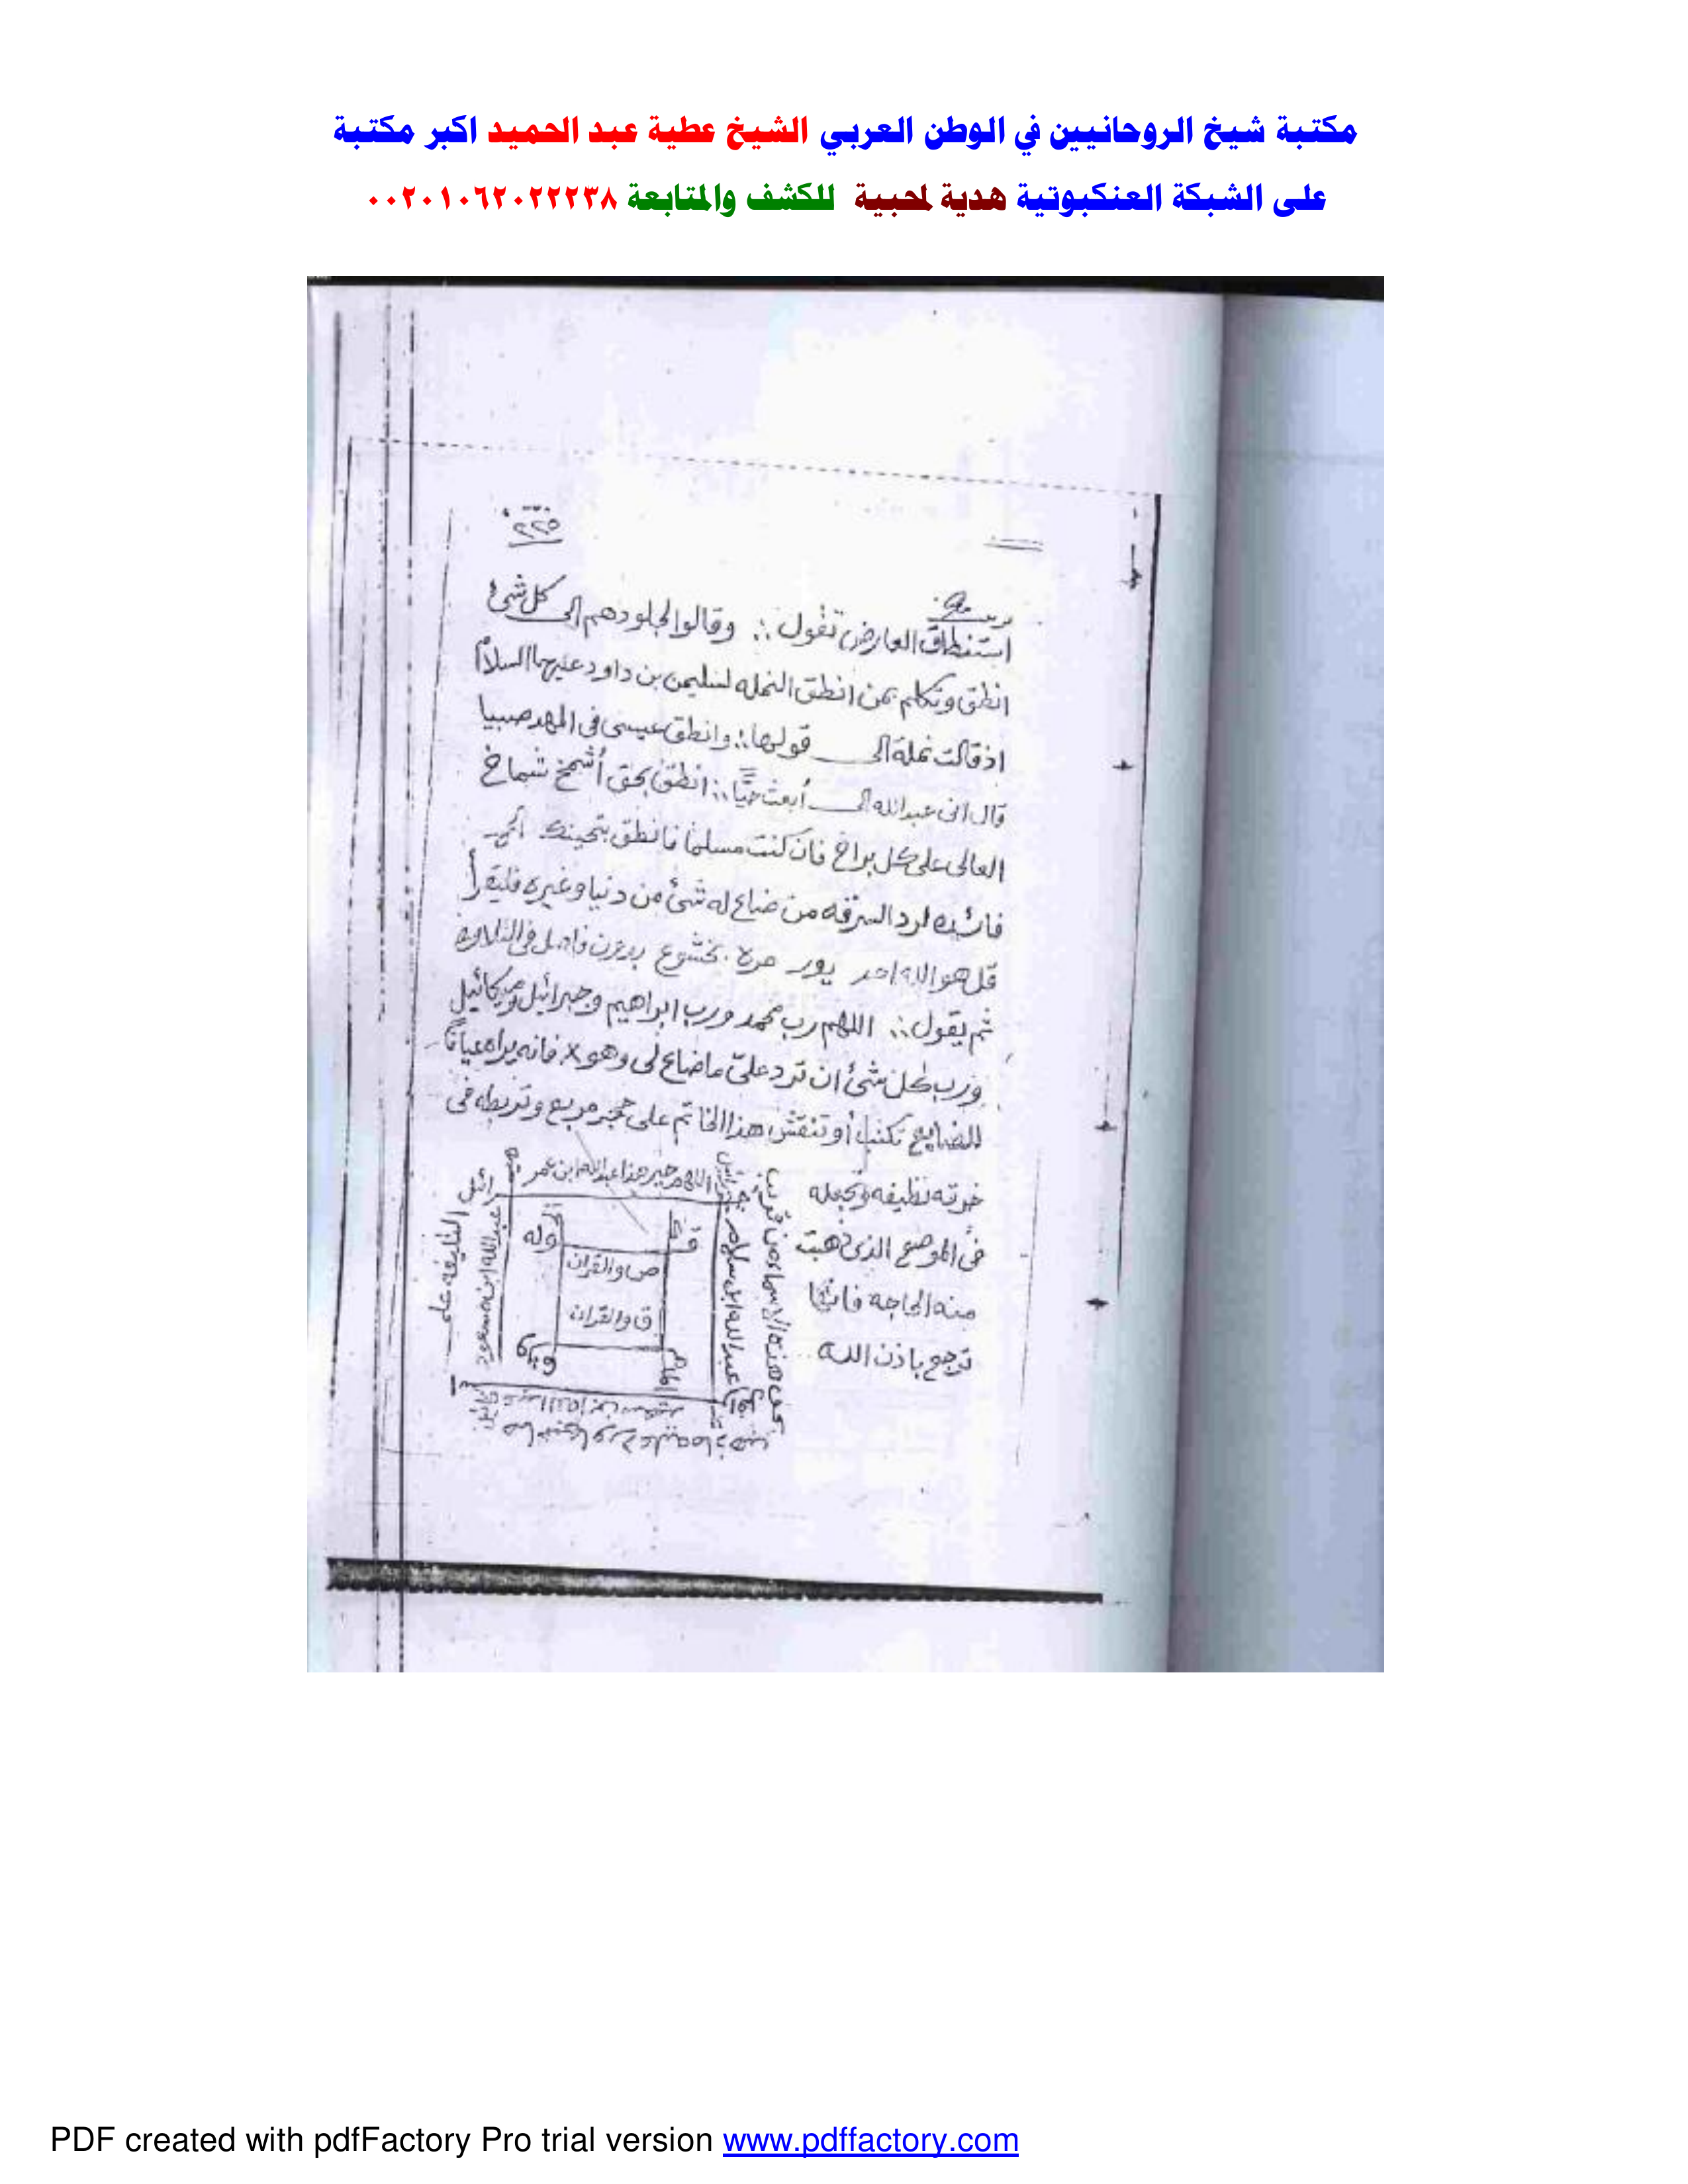 مكتبة شيخ الروحانيين في الوطن العربي الشيخ عطية عبد الحميد اكبر مكتبة
على الشبكة العنكبوتية هدية لمحبية للكشف والمتابعة ٠٠٢٠١٠٦٢٠٢٢٢٣٨
٢٢٥
استنطاق العارض تقول ∴ وقالوا لجلودهم الى كل شئ
انطق وتكلم بمن انطق النمله لسليمن بن داود عليهما السلام
اذ قالت نملة الى قولها ∴ وانطق عيسى فى المهد صبيا
قال انى عبد الله الى أبعث حيًّا ∴ انطق بحق أشمخ شماخ
العالى على كل براخ فان كنت مسلما فانطق
فائده لرد السرقه من ضاع له شئ من دنيا وغيره فليقرأ
قل هو الله احد مرة بخشوع فى التلاوة
ثم يقول ∴ اللهم رب محمد ورب ابراهيم وجبرائيل وميكائيل
ورب كل شئ ان ترد علىّ ما ضاع لى وهو x فانه يراه عيانًا
للضايع تكتب أو تنقش هذا الخاتم على حجر مربع وتربطه فى
خرقه نظيفه وتجعله
فى الموضع الذى ذهبت
منه الحاجه فانها
ترجع باذن الله
عبد الله ابن عمر
عبد الله ابن سلام
عبد الله ابن مسعود
وله
ص والقران
ق والقران
PDF created with pdfFactory Pro trial version www.pdffactory.com